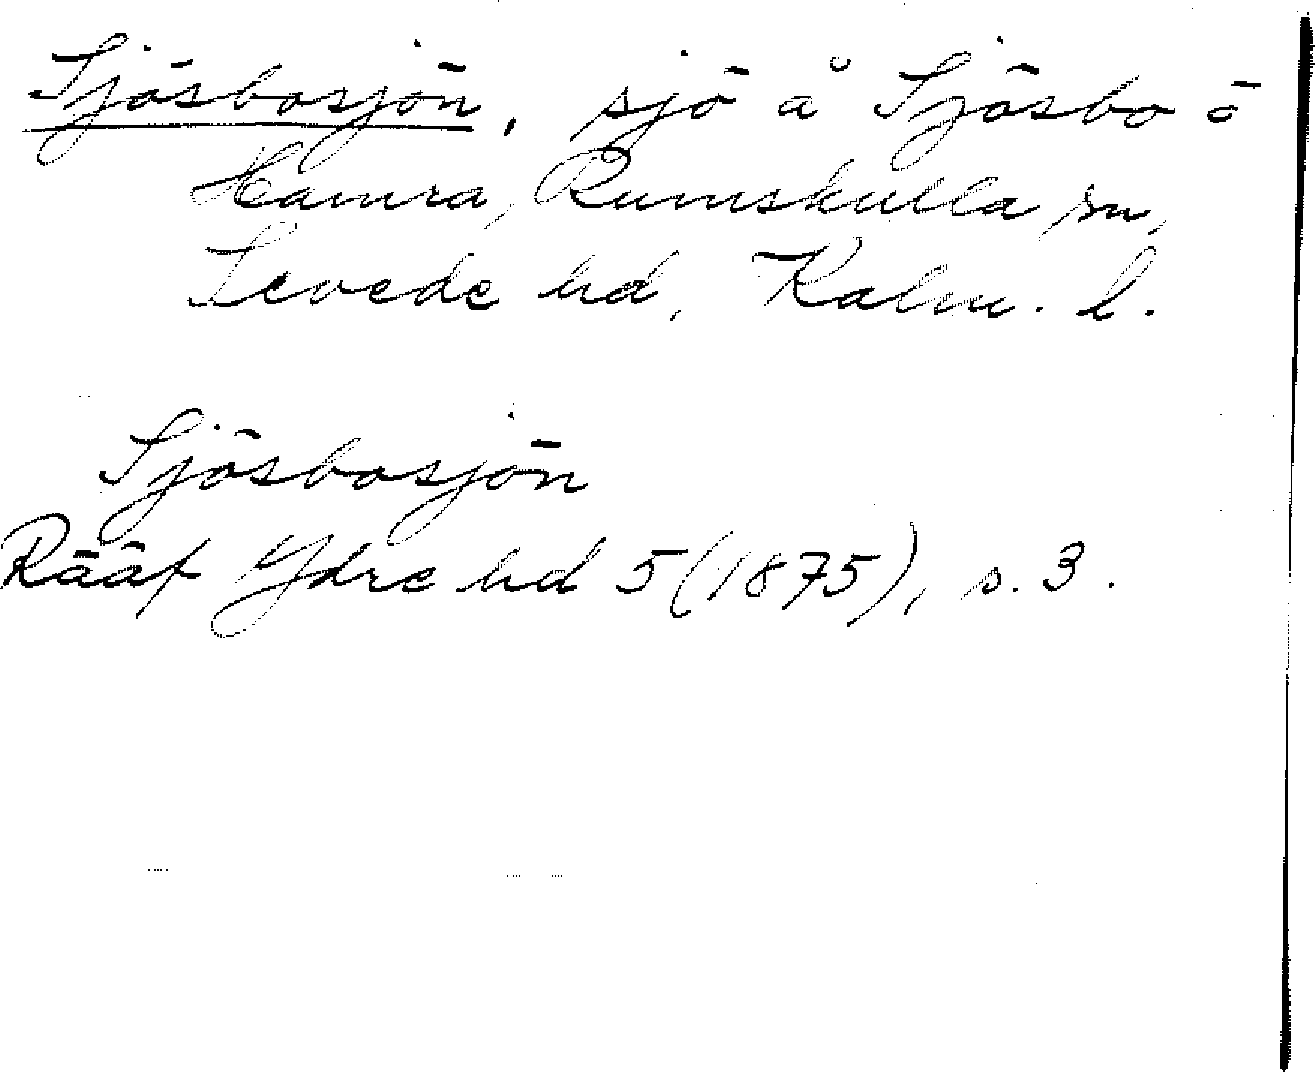 Sjösbosjön, sjö å Sjösbo o
Hamra, Rumskulla sn,
Sevede hd, Kalm. l.
Sjösbosjön
Rääf Ydre hd 5 (1875), s. 3.